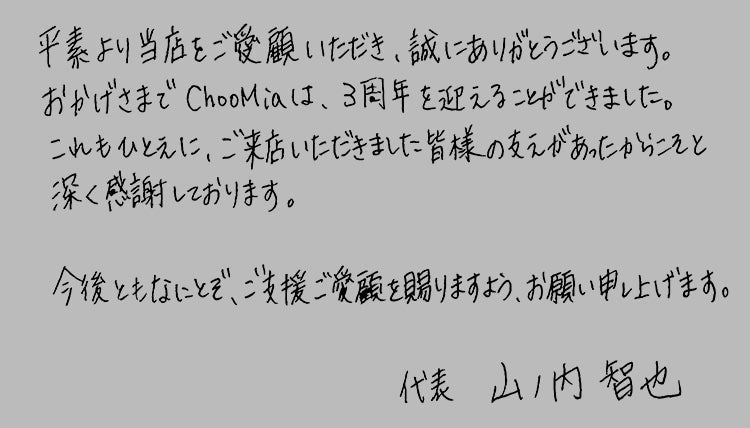 平素より当店をご愛顧いただき、誠にありがとうございます。
おかげさまでChooMiaは、3周年を迎えることができました。
これもひとえに、ご来店いただきました皆様の支えがあったからこそと
深く感謝しております。
今後ともなにとぞ、ご支援ご愛顧を賜りますよう、お願い申し上げます。
代表 山ノ内 智也